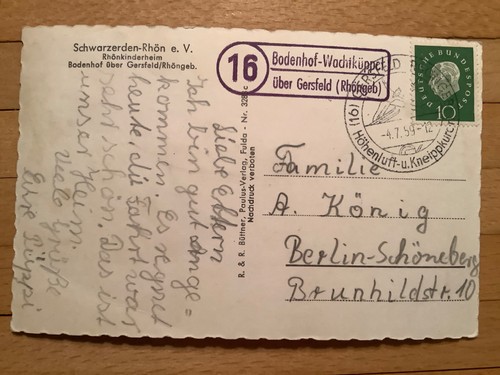 Schwarzerden-Rhön e. V.
Rhönkinderheim
Bodenhof über Gersfeld/Rhöngeb.
Liebe Eltern
Ich bin gut ange=
kommen. Es regnet
heute, die Fahrt war
sehr schön. Das ist
unser Heim.
viele Grüße
Eure Püppi
R. & R. Büttner, Paulus-Verlag, Fulda - Nr.
Nachdruck verboten
16
Bodenhof-Wachtküppel
über Gersfeld (Rhöngeb)
(16)
-4.7.59-12
Höhenluft-u.Kneippkurort
DEUTSCHE BUNDESPOST
10
Familie
A. König
Berlin-Schöneberg
Brunhildstr. 10